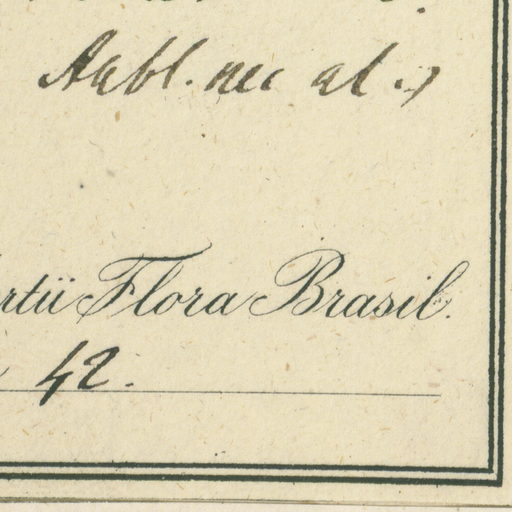 Aubl. nec al.)
rtii Flora Brasil.
42.